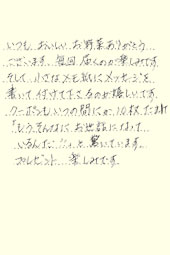 いつも おいしい お野菜ありがとう
ございます。毎回 届くのが 楽しみです
そして 小さなメモ紙にメッセージを
書いて 付けて下さるのが嬉しいです。
クーポンもいつの間にか 10枚たまり
「もう そんなに お世話になって
いるんだ!!」と 驚いています。
プレゼント 楽しみです